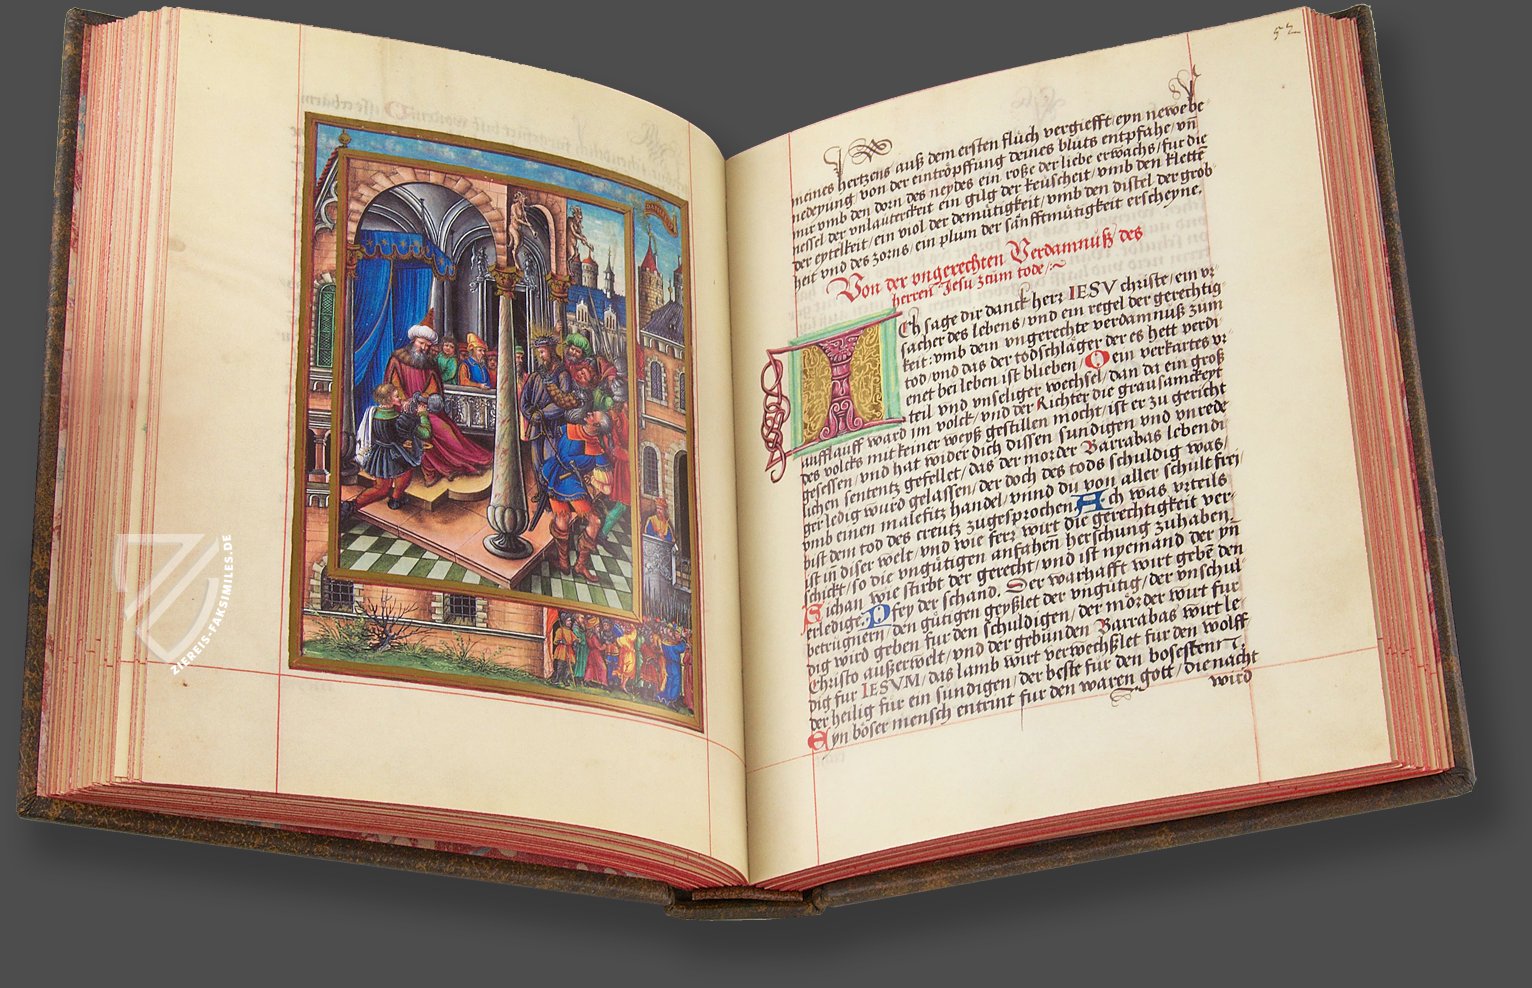 52
meines hertzens auß dem ersten fluch vergiefft eyn newe be
nedeyung von der eintröpffung deines blüts entpfahe vn̄
mir vmb den dorn des neydes ein roße der liebe erwachs für die
nessel der vnlauterckeit ein gilg der keüscheit vmb den klette
der eytelkeit ein viol der demütigkeit vmb den distel der grob
heit vnd des zorns ein plum der sänfftmütigkeit erscheyne.
Von der vngerechten Verdamnuß des
herren Jesu zum tode
Ich sage dir danck herr IESV christe ein vr
sacher des lebens vnd ein regel der gerechtig
keit: vmb dein vngerechte verdamnuß zum
tod vnd das der todschläger der es hett verdi
enet bei leben ist blieben O ein verkartes vr
teil vnd vnseliger wechsel dan da ein groß
aufflauff ward im volck vnd der Richter die grausamckeyt
des volcks mit keiner weyß gestillen mocht ist er zu gericht
gesessen vnd hat wider dich dissen sundigen vnd vnrede
lichen sententz gefellet das der morder Barrabas lebendi
ger ledig wurd gelassen der doch des tods schuldig was
vmb einen malefitz handel vnnd du von aller schult frei
bist dem tod des creutz zugesprochen Ach was vrteils
ist in diser welt vnd wie ferz wirt die gerechtigkeit ver-
schickt so die vngütigen anfahen herschung zuhaben
Sichan wie stirbt der gerecht vnd ist nyemand der yn
erledige. Pfey der schand. Der warhafft wirt gebē den
betrugnern den gütigen geyßlet der vngutig der vnschul
dig wird geben fur den schuldigen der mörder wurt fur
Christo außerwelt vnd der gebunden Barrabas wurt le-
dig fur IESVM das lamb wurt verwechßlet fur den wolff
der heilig fur ein sundigen der beste fur den bosesten
Eyn böser mensch entrint fur den waren gott die nacht
wird
ZIEREIS-FAKSIMILES.DE